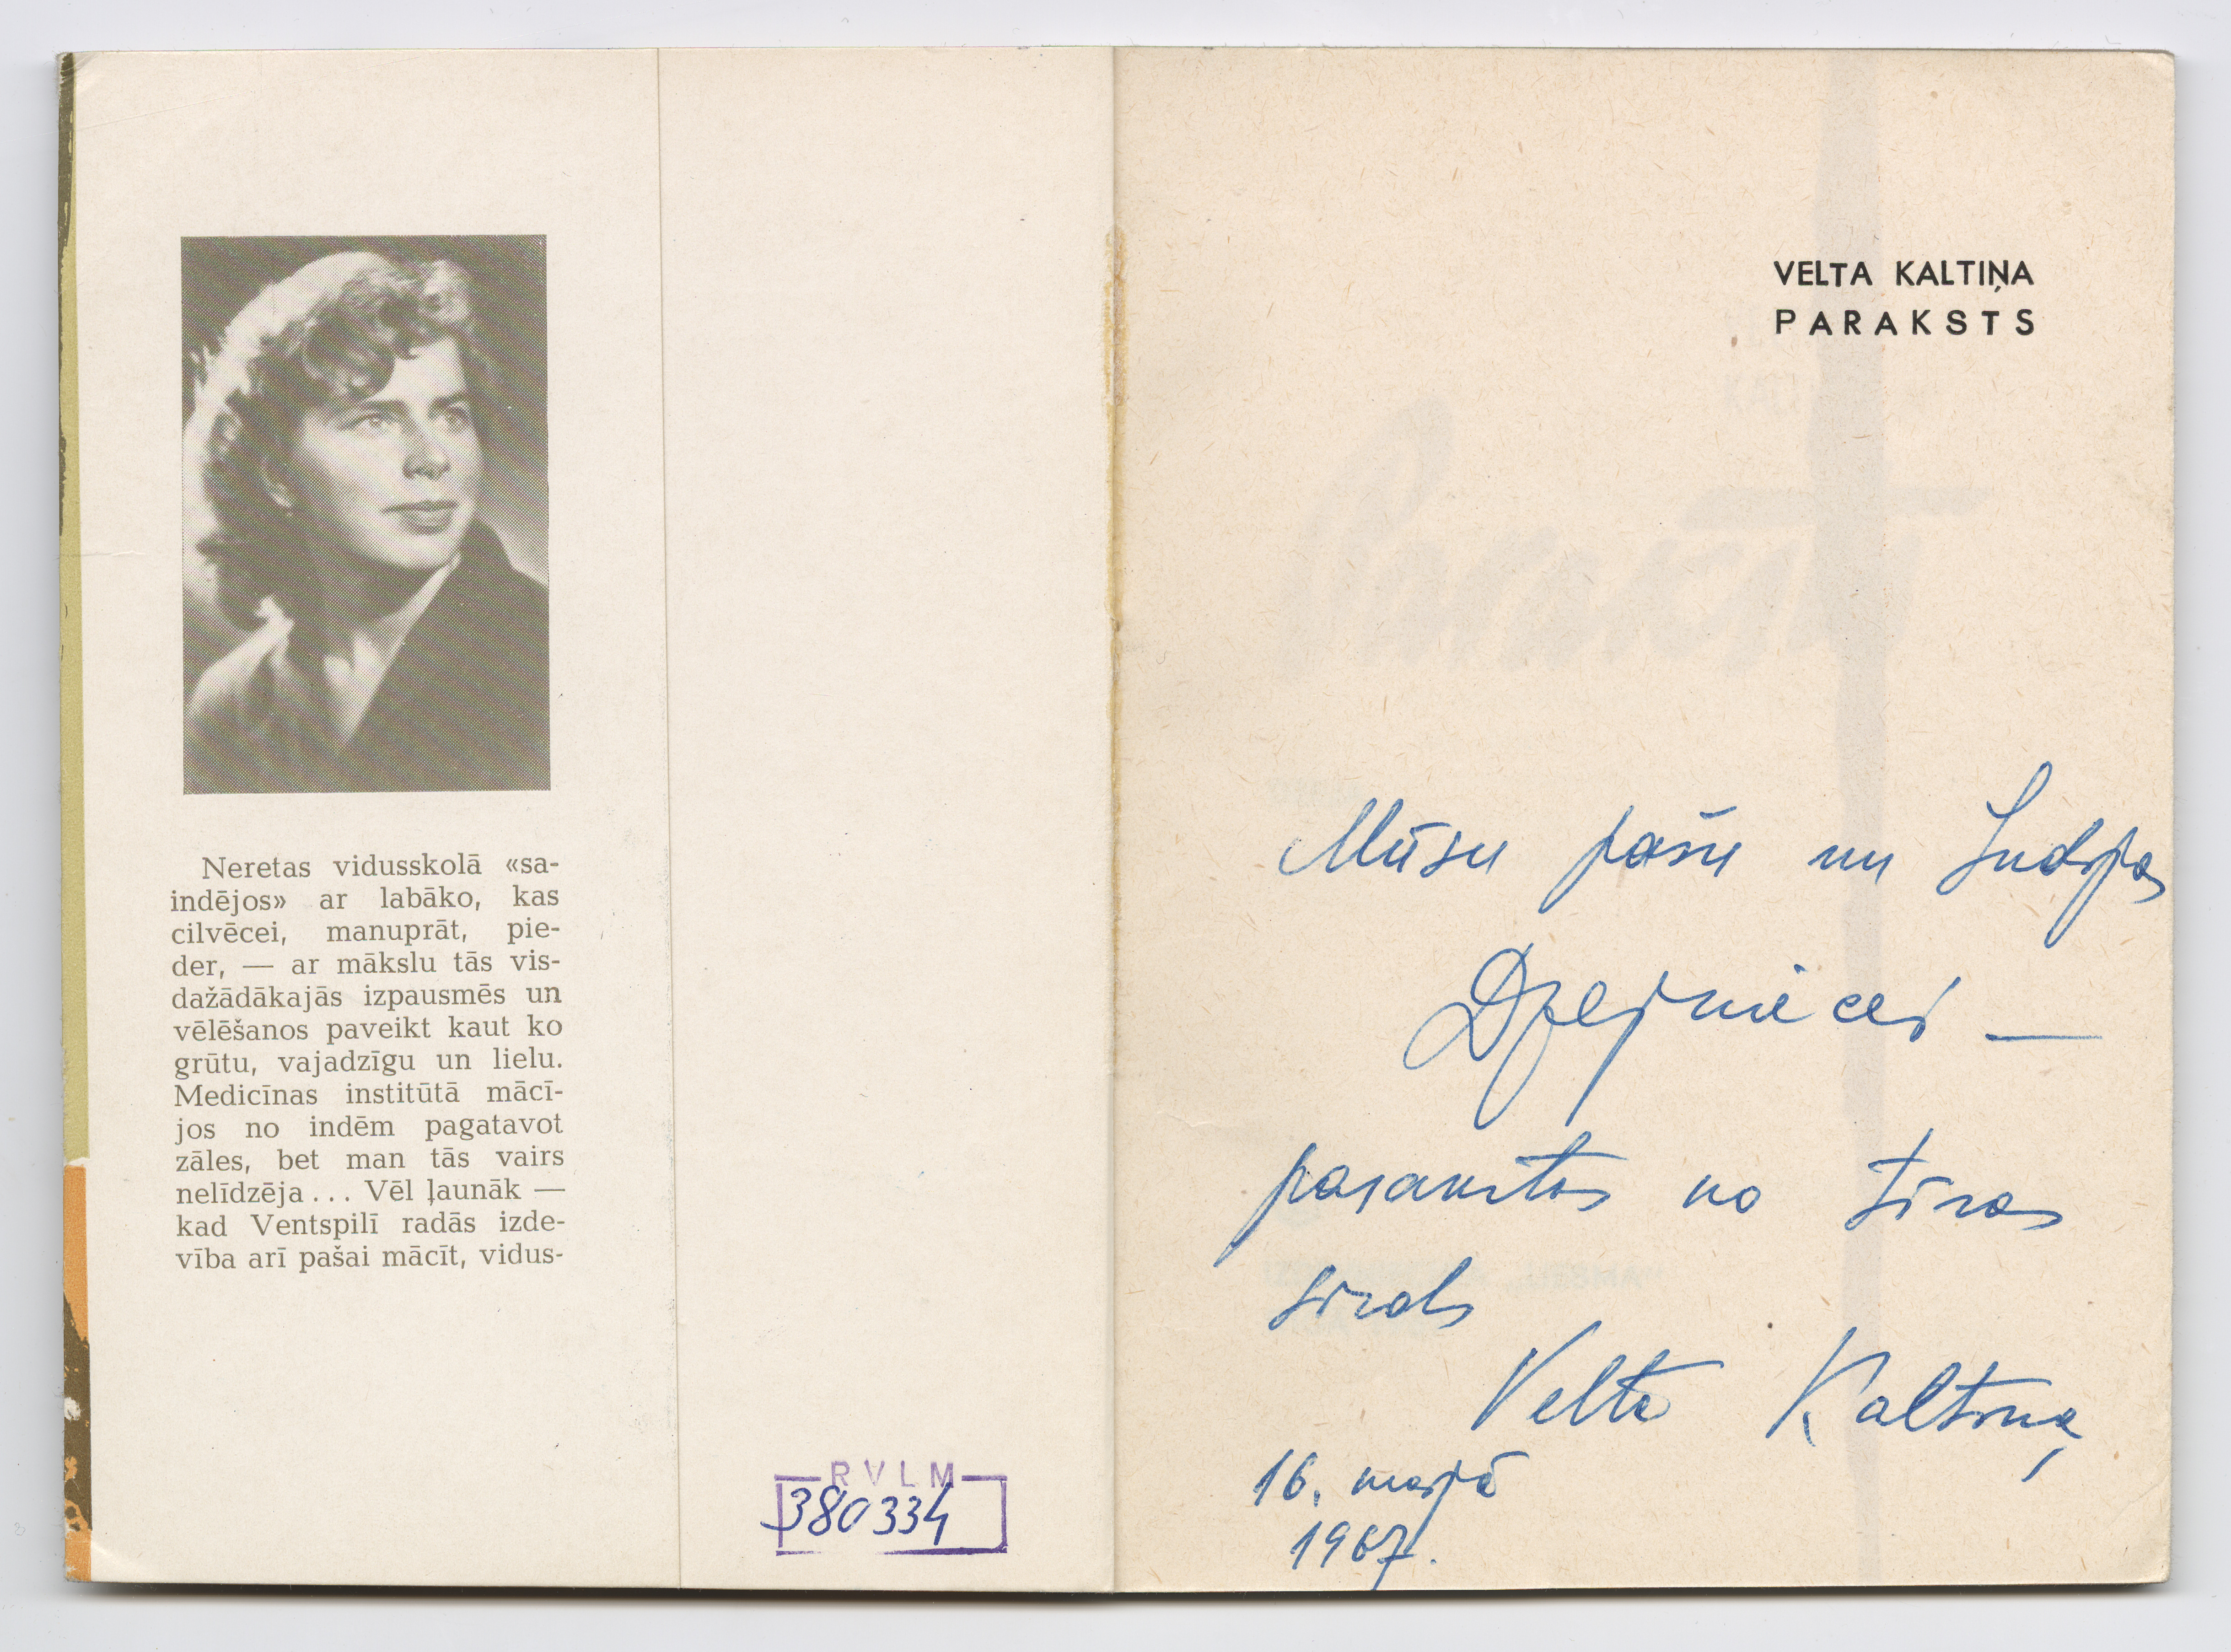 Neretas vidusskolā «sa-
indējos» ar labāko, kas
cilvēcei, manuprāt, pie-
der, — ar mākslu tās vis-
dažādākajās izpausmēs un
vēlēšanos paveikt kaut ko
grūtu, vajadzīgu un lielu.
Medicīnas institūtā mācī-
jos no indēm pagatavot
zāles, bet man tās vairs
nelīdzēja... Vēl ļaunāk —
kad Ventspilī radās izde-
vība arī pašai mācīt, vidus-
RVLM
380334
VELTA KALTIŅA
PARAKSTS
Mūsu pašu un
Dzejniecei —
no tīras
sirds
Velta Kaltiņa
16. maijā
1967.